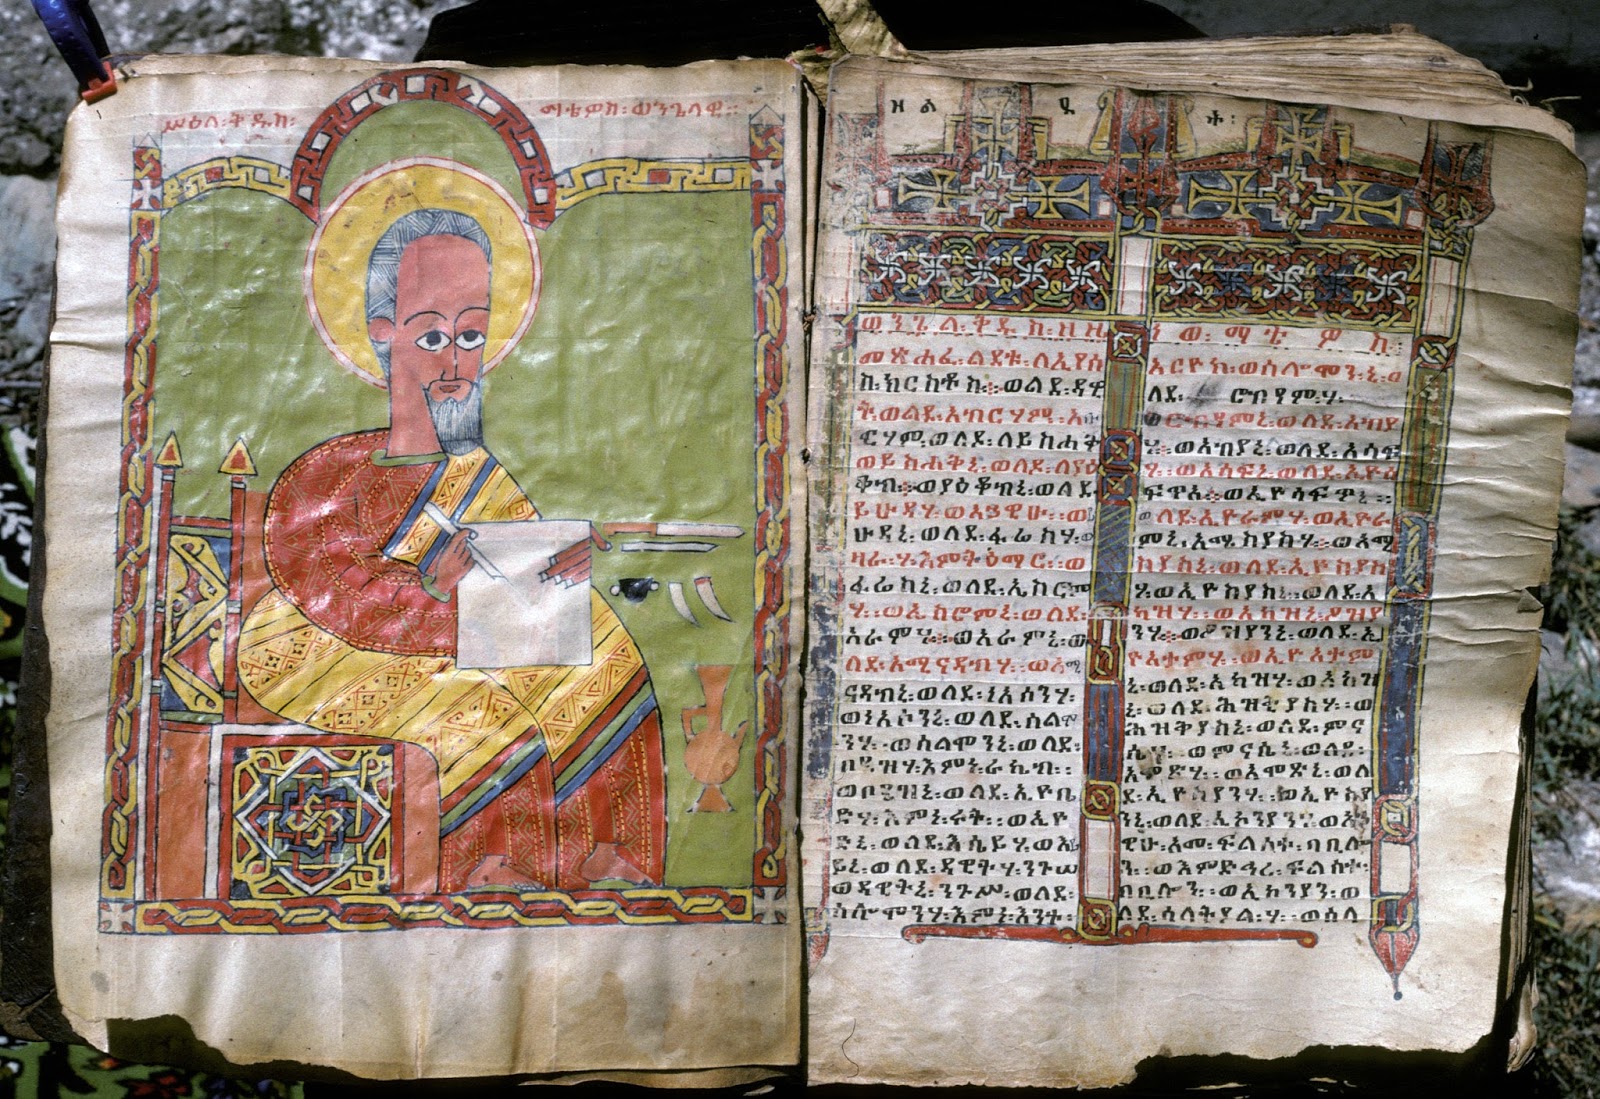 ሥዕለ፡ቅዱስ፡
ማቴዎስ፡ወንጌላዊ፡፡
ዘል
ት፡
ወንጌል፡ቅዱስ፡ዘዜነወ፡ማቴዎስ፡
መጽሐፈ፡ልደቱ፡ለኢየሱ
ስ፡ክርስቶስ፡፡ወልደ፡ዳዊ
ት፡ወልደ፡አብርሃም፡አብ
ርሃም፡ወለደ፡ለይስሐቅ
ወይስሐቅኒ፡ወለደ፡ለያዕ
ቆብ፡፡ወያዕቆብኒ፡ወለደ፡
ይሁዳሃ፡ወአኃዊሁ፡፡ወይ
ሁዳኒ፡ወለደ፡ፋሬስሃ፡ወ
ዛራ፡ሃ፡እምትዕማር፡፡ወ
ፋሬስኒ፡ወለደ፡ኤስሮም
ሃ፡፡ወኤስሮምኒ፡ወለደ፡
አራምሃ፡፡ወአራምኒ፡ወ
ለደ፡አሚናዳብሃ፡፡ወአሚ
ናዳብኒ፡ወለደ፡ነአሶንሃ፡
ወነአሶንኒ፡ወለደ፡ሰልሞ
ንሃ፡፡ወሰልሞንኒ፡ወለደ፡
ቦዔዝሃ፡እምነ፡ራኬብ፡፡
ወቦዔዝኒ፡ወለደ፡ኢዮቤ
ድሃ፡እምነ፡ሩት፡፡ወኢዮቤ
ድኒ፡ወለደ፡እሴይሃ፡ወእሴ
ይኒ፡ወለደ፡ዳዊትሃ፡ንጉሠ
ወዳዊትኒ፡ንጉሥ፡ወለደ፡
ሰሎሞንሃ፡እምነ፡እንተ፡
ኦርዮስ፡ወሰሎሞንኒ፡ወ
ለደ፡ ሮብዓምሃ፡
ወሮብዓምኒ፡ወለደ፡አብያ
ሃ፡፡ወአብያኒ፡ወለደ፡አሳፍ
ሃ፡፡ወአሳፍኒ፡ወለደ፡ኢዮሳ
ፍጥሃ፡፡ወኢዮሳፍጥኒ፡፡
ወለደ፡ኢዮራምሃ፡ወኢዮራ
ምኒ፡አሜስያስሃ፡፡ወአሜ
ስያስኒ፡ወለደ፡ኢዮስያስ
ሃ፡ወኢዮስያስኒ፡ወለደ፡አ
ካዝሃ፡፡ወአካዝኒ፡ዖዝያ
ንሃ፡፡ወዖዝያንኒ፡ወለደ፡ኢ
ዮአታምሃ፡ወኢዮአታም
ኒ፡ወለደ፡አካዝሃ፡ወአካዝ
ኒ፡ወለደ፡ሕዝቅያስሃ፡ወ
ሕዝቅያስኒ፡ወለደ፡ምና
ሴሃ፡፡ወምናሴኒ፡ወለደ፡
አሞጽሃ፡፡ወአሞጽኒ፡ወለ
ደ፡ኢዮስያንሃ፡፡ወኢዮስያ
ንኒ፡ወለደ፡ኢኮንያንሃ፡ወአኃ
ዊሁ፡አመ፡ፍልሰተ፡ባቢሎ
ን፡፡ወእምድኅረ፡ፍልሰተ፡
ባቢሎን፡፡ወኢኮንያን፡ወ
ለደ፡ሰላትያል፡ሃ፡፡ወሰላ